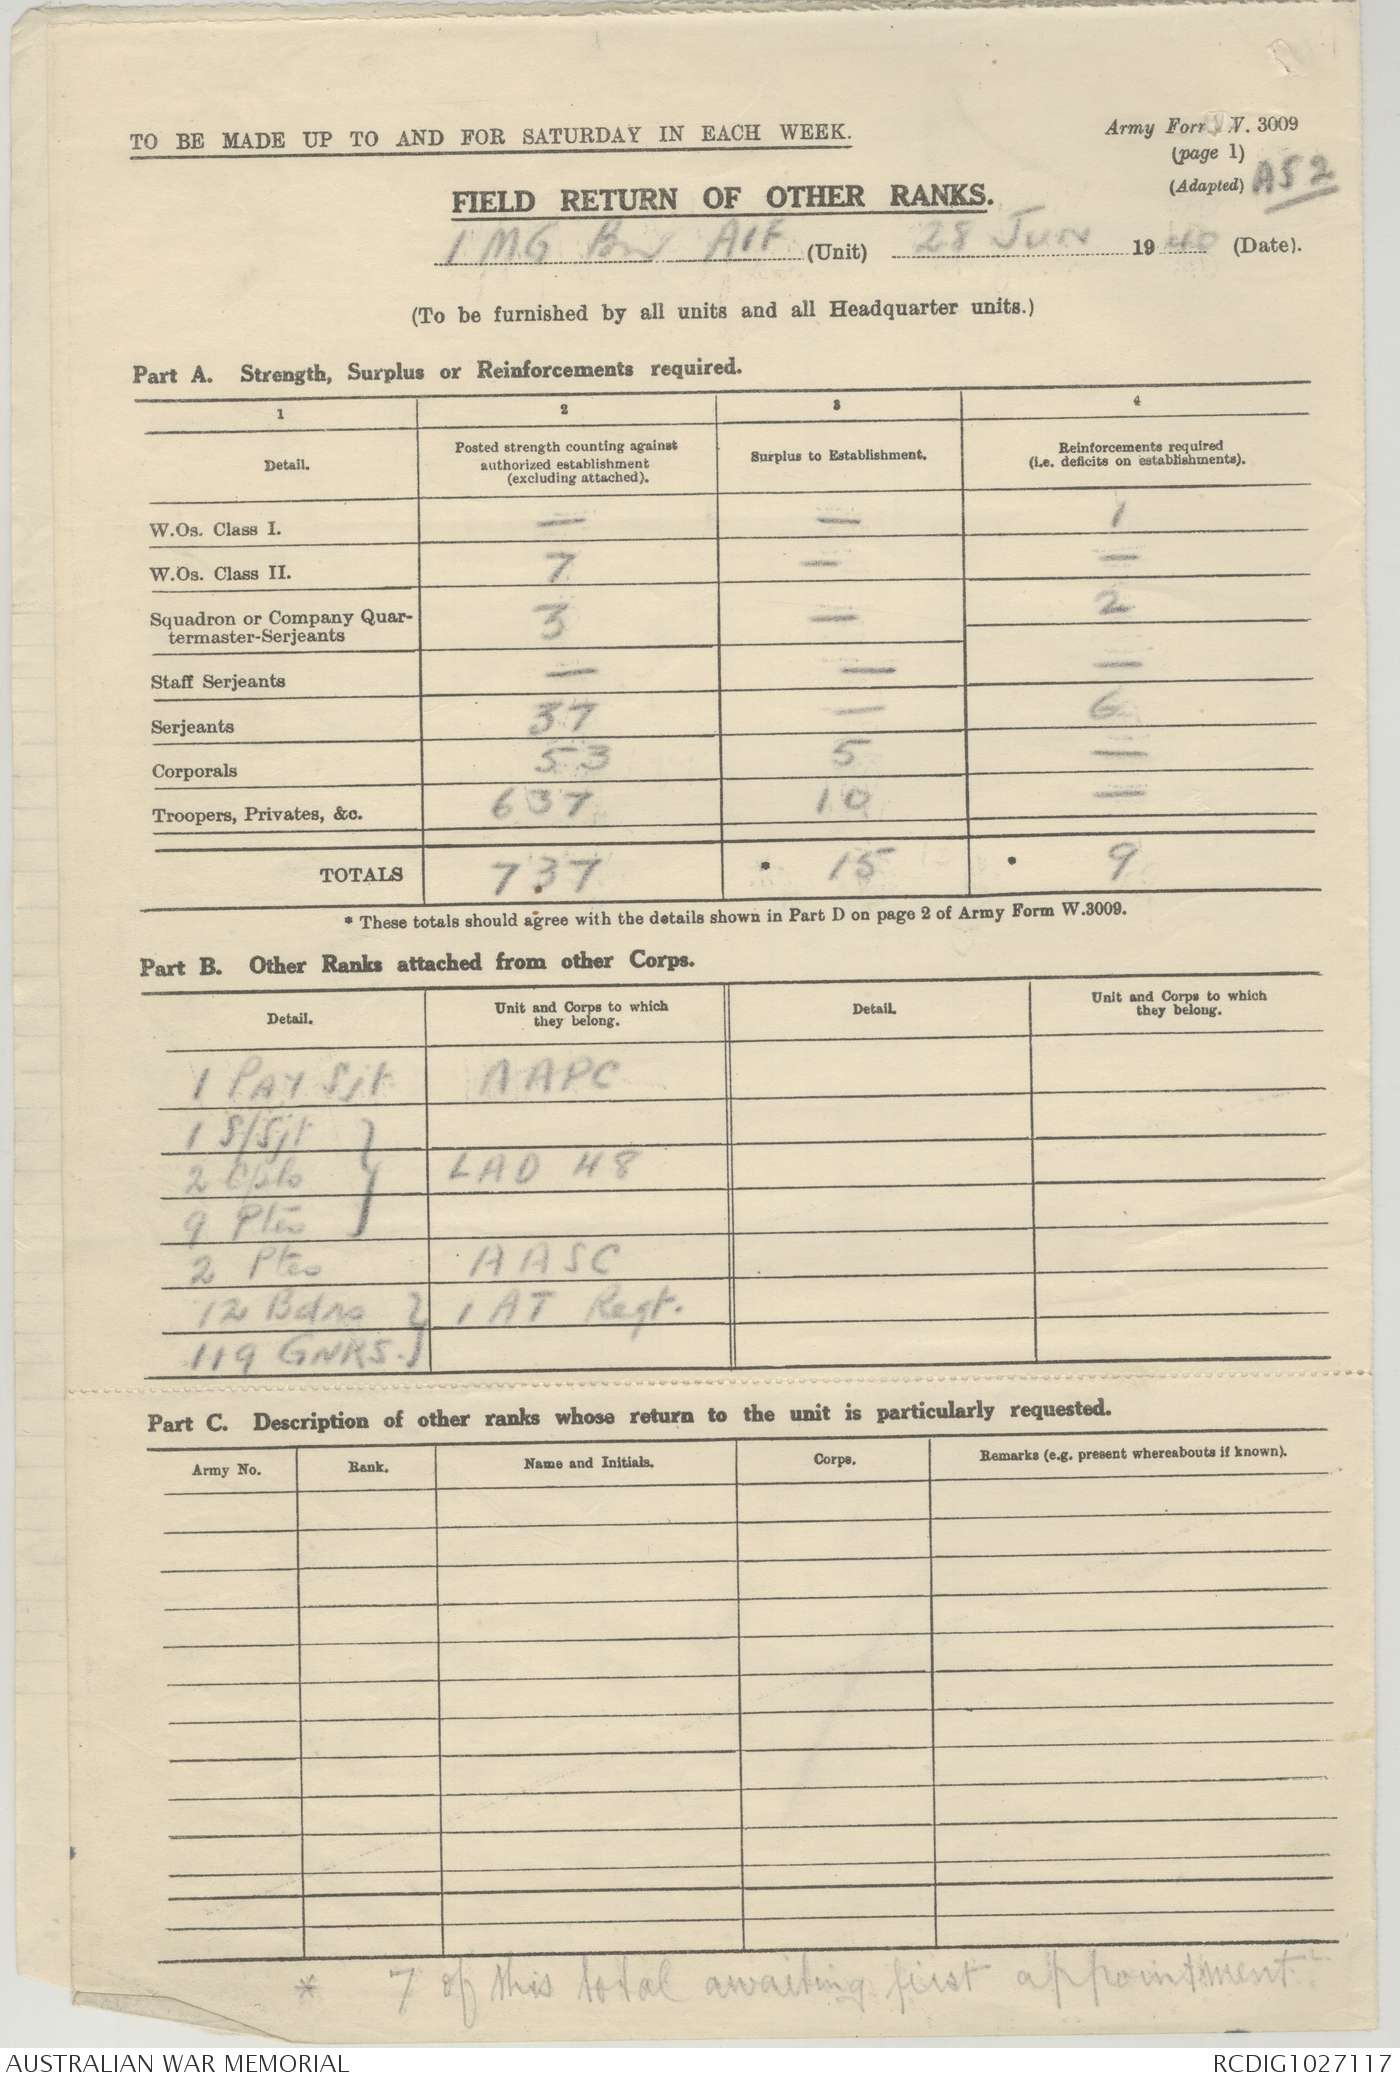 TO BE MADE UP TO AND FOR SATURDAY IN EACH WEEK.
Army Form W. 3009
(page 1)
(Adapted) A52
FIELD RETURN OF OTHER RANKS.
1 MG Bn AIF (Unit) 28 Jun 1940 (Date).
(To be furnished by all units and all Headquarter units.)
Part A. Strength, Surplus or Reinforcements required.
1 2 3 4
Detail. Posted strength counting against authorized establishment (excluding attached). Surplus to Establishment. Reinforcements required (i.e. deficits on establishments).
W.Os. Class I. — — 1
W.Os. Class II. 7 — —
Squadron or Company Quar-
termaster-Serjeants 3 — 2
Staff Serjeants — — —
Serjeants 37 — 6
Corporals 53 5 —
Troopers, Privates, &c. 637 10 —
TOTALS 737 * 15 * 9
* These totals should agree with the details shown in Part D on page 2 of Army Form W.3009.
Part B. Other Ranks attached from other Corps.
Detail. Unit and Corps to which they belong. Detail. Unit and Corps to which they belong.
1 Pay Sjt AAPC
1 S/Sjt }
2 Cpls } LAD 48
9 Ptes }
2 Ptes AASC
12 Bdrs } 1 AT Regt.
119 GNRS. }
Part C. Description of other ranks whose return to the unit is particularly requested.
Army No. Rank. Name and Initials. Corps. Remarks (e.g. present whereabouts if known).
* 7 of this total awaiting first appointment
AUSTRALIAN WAR MEMORIAL RCDIG1027117